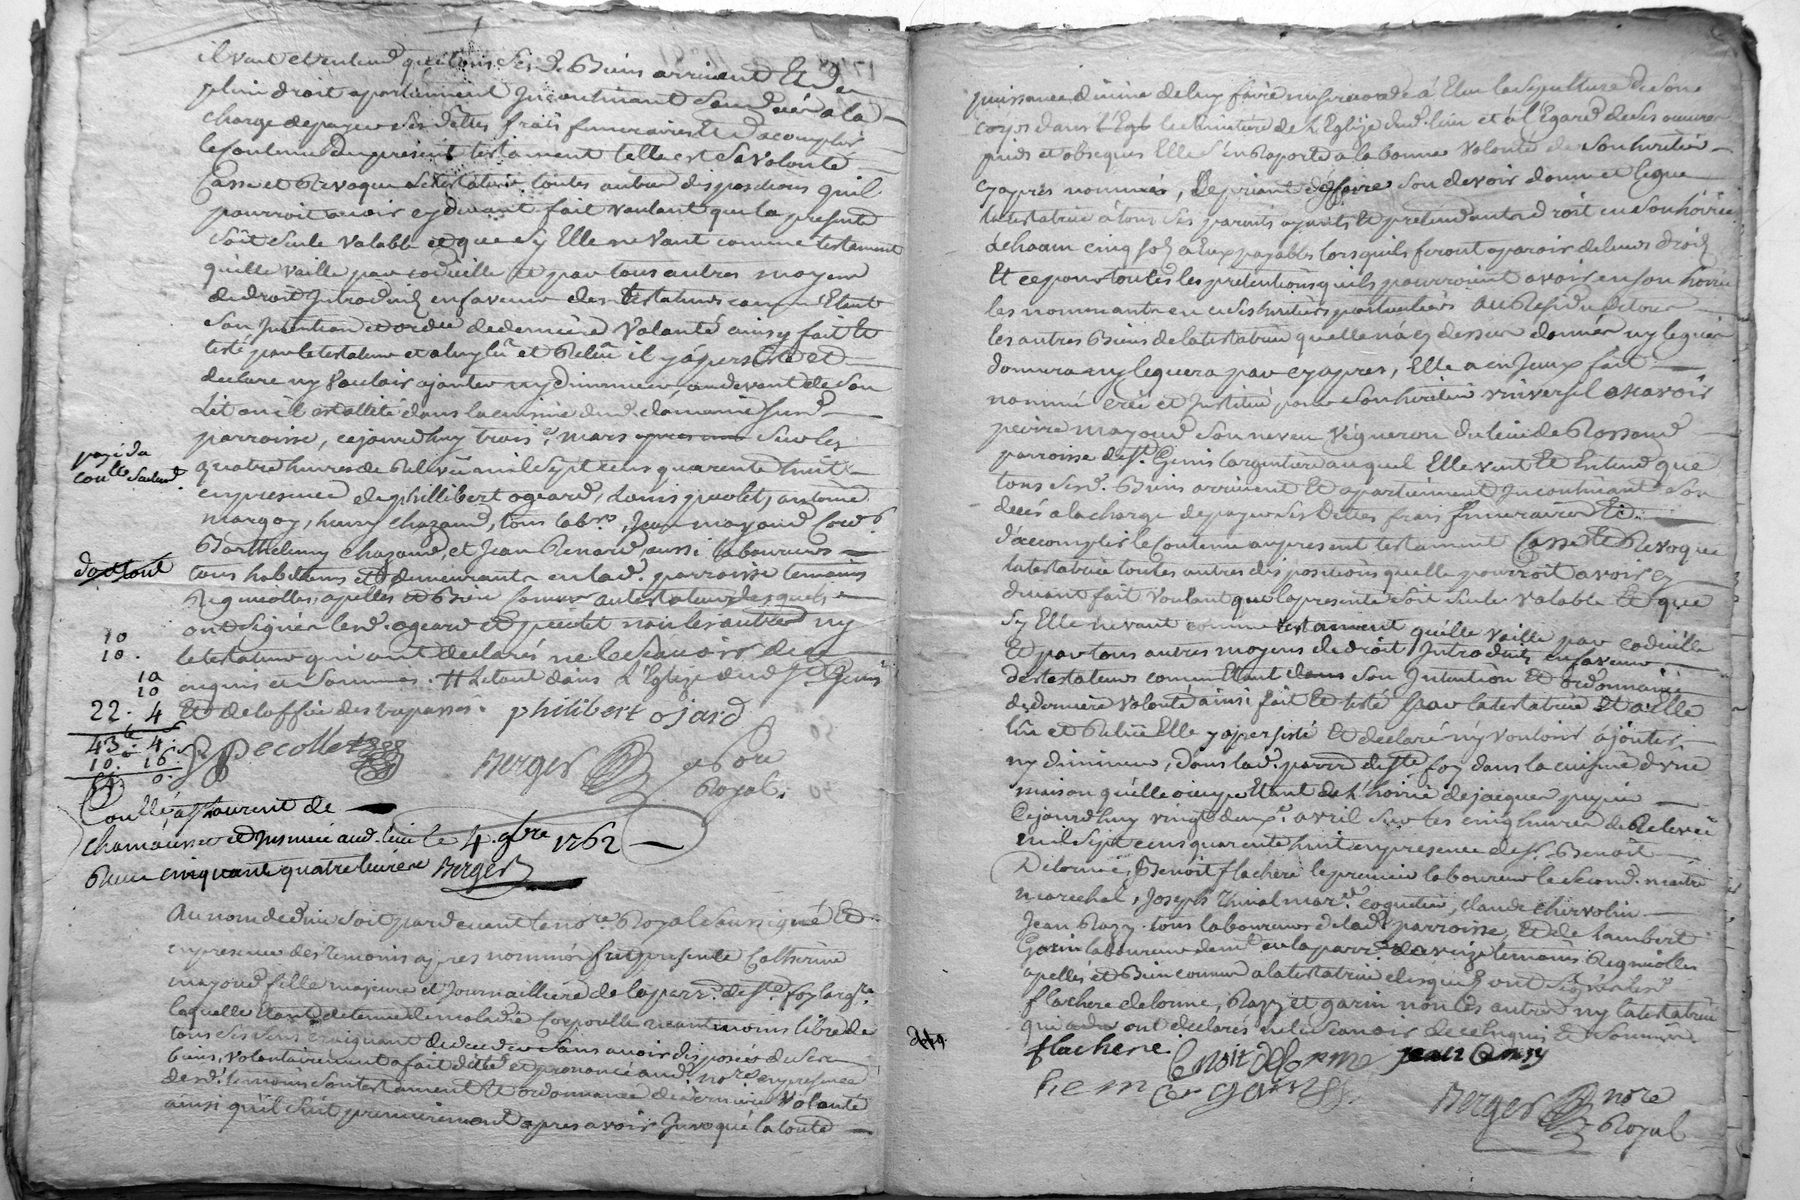 il veut et entend que tous ses d. Biens arrivent Et de
plein droit apartiennent Incontinant son décés a la
charge de payer ses dettes frais funeraires Et d'acomplir
le contenu du present testament telle est sa volonté
Casse et Revoque le testateur toutes autres dispositions qu'il
pourroit avoir cy devant fait voulant que la presente
soit seule valable et que sy Elle ne vaut comme testament
qu'elle vaille par codicille et par tous autres moyens
de droit Introduits en faveur des testateurs comme Etant
son Intention et ordre de derniere volonté ainsy fait et
testé par le testateur et a luy lû et Relû il y á persisté et
declaré ny vouloir ajouter ny diminuer au devant de son
Lit ou il est allité dans la cuisine du d. domaine susd.
parroisse, cejourdhuy trois e. mars apres midi sur les
quatre heures de Relevée mil sept cens quarente huit
en presence de phillibert ogeard, Louis pecolet, antoine
margot, henry chazaud, tous lab.rs, Jean mayoud cord.
Barthelemy chazaud, et Jean Renard, aussi laboureurs
tous habitants et demeurants en lad. parroisse temoins
Regnicolles, apellés et Bien connus au testateur desquels
ont signés lesd. ogeard et pecolet non les autres ny
le testateur qui ont declarés ne le scavoir de ce
enquis et sommés. # Le tout dans L'Eglise dud. St. Genis
Et de l'office des trepassés. philibert ojard
paié du
coulle seulemt.
doit tout
10
10.
10
10
22. 4
43: 4:
10. 16:
54. 0.
Lpecollet Berger no.re
Royal.
Controllé, a St Laurent de
chamousset et Insinué aud. lieu le 4 9bre 1762
Reçu cinquante quatre livres Berger
Au nom de dieu soit pardevant le no.re Royal soussigné Et
en presence des temoins apres nommés fut presente Catherine
mayoud fille majeure et Journailliere de la parr. de Ste. foy l'arg.re
laquelle Etant detenue de maladie corporelle neantmoins libre de
tous ses sens craignant de deceder sans avoir disposée de ses
biens, volontairement a fait dicté et prononcé aud. no.re en presence
desd. temoins son testament Et ordonnance de derniere volonté
ainsi qu'il suit premierement apres avoir Invoqué la toute
puissance divine de luy faire misericorde á Elu la sepulture de son
corps dans l'Egl le Cimetiere de L'Eglise dud. lieu et á l'Egard de ses œuvres
pies et obseques Elle s'en Raporte a la bonne volonté de son heritier
cy aprés nommé, Le priant d'y faire son devoir donne et legue
la testatrice á tous ses parents ayants Et pretendants droit en son hoirie
á chacun cinq sols á Eux payables lorsquils feront aparoir de leurs droits
Et ce pour toutes les pretentions quils pourroient avoir en son hoirie
les nommants en ce ses heritiers particuliers au Residu de tous
les autres Biens de la testatrice quelle ná cy dessus donnés ny legués
donnera ny leguera par cy apres, Elle a en Iceux fait
nommé créé et Institué, pour son heritier universel a scavoir
pierre mayoud son neveu vigneron du lieu de Rossand
parroisse de St. Genis l'argentiere auquel Elle veut Et Entend que
tous sesd. Biens arrivent Et apartiennent Incontinant son
décés a la charge de payer ses dettes frais funeraires Et
d'accomplir le contenu au present testament Casse Et Revoque
la testatrice toutes autres dispositions quelle pourroit avoir cy
devant fait voulant que la presente soit seule valable Et que
sy Elle ne vaut comme testament qu'elle vaille par codicille
Et par tous autres moyens de droit Introduits en faveur
des testateurs comme Etant dans son Intention Et ordonnance
de derniere volonté ainsi fait Et testé par la testatrice Et a Elle
lû et Relû Elle y á persisté Et declaré ny vouloir ájouter
ny diminuer, dans lad. parr. de Ste. foy dans la cuisine d'une
maison qu'elle occupe Etant de L'hoirie de jacques pupié
Cejourdhuy vingt deux e. avril sur les cinq heures de Relevée
mil sept cens quarente huit en presence de Sr. Benoit
Delorme, Benoit flachere le premier laboureur le second maitre
marechal, Joseph Thival mar.d coquetier, claude chervolin
Jean Razy tous laboureurs de lad. parroisse, Et de Lambert
Garin laboureur dem.t en la parr. d'aveize temoins Regnicolles
apellés et Bien connus a la testatrice desquels ont signés lesd.
flachere delorme, Razy et garin non les autres ny la testatrice
qui ont declarés ne le scavoir de ce Enquis Et sommés
flachere. Benoit delorme jean Razy
Berger no.re
Royal